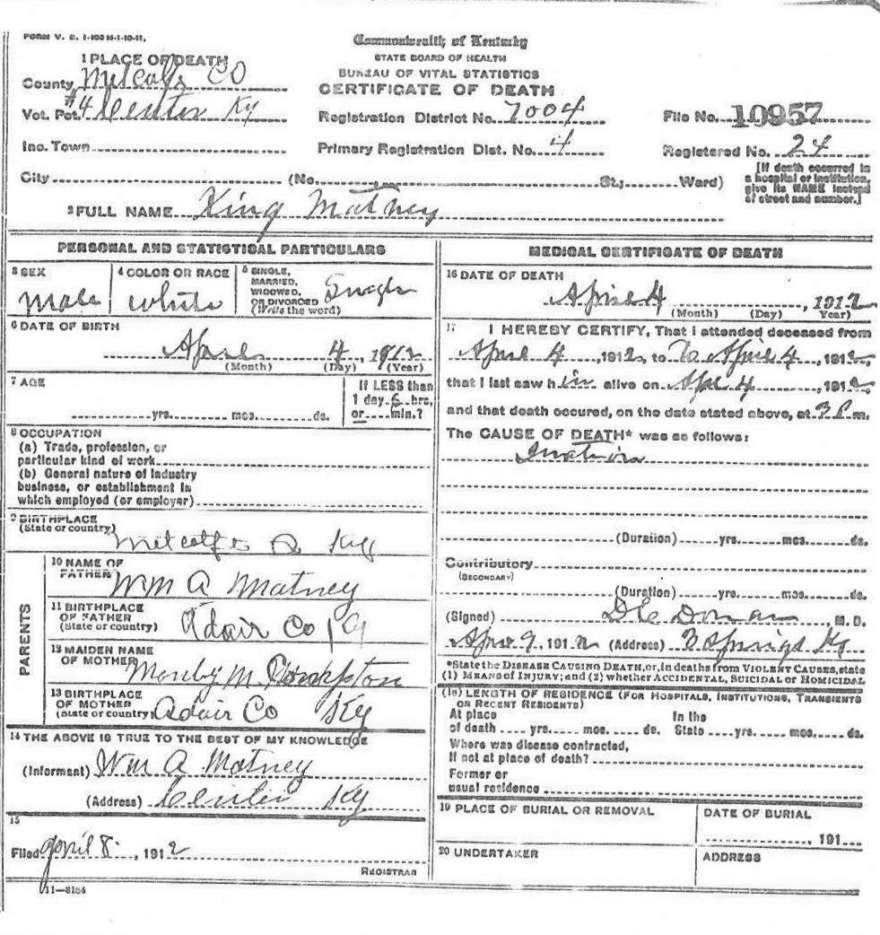 FORM V. S. 1-100 M-1-10-11.
Commonwealth of Kentucky
STATE BOARD OF HEALTH
BUREAU OF VITAL STATISTICS
CERTIFICATE OF DEATH
1 PLACE OF DEATH
County Metcalfe CO
Vot. Pct. #4 Center Ky
Registration District No. 7004
File No. 10957
Inc. Town
Primary Registration Dist. No. 4
Registered No. 24
City (No. St.; Ward)
[If death occurred in a hospital or institution, give its NAME instead of street and number.]
2 FULL NAME King Matney
PERSONAL AND STATISTICAL PARTICULARS
3 SEX
Male
4 COLOR OR RACE
White
5 SINGLE, MARRIED, WIDOWED, OR DIVORCED (Write the word)
Single
6 DATE OF BIRTH
April 4, 1912
(Month) (Day) (Year)
7 AGE
yrs. mos. ds.
If LESS than
1 day 6 hrs.
or min.?
8 OCCUPATION
(a) Trade, profession, or
particular kind of work
(b) General nature of industry
business, or establishment in
which employed (or employer)
9 BIRTHPLACE
(State or country)
Metcalfe Co Ky
PARENTS
10 NAME OF FATHER
Wm A Matney
11 BIRTHPLACE OF FATHER (State or country)
Adair Co Ky
12 MAIDEN NAME OF MOTHER
M.
13 BIRTHPLACE OF MOTHER (State or country)
Adair Co Ky
14 THE ABOVE IS TRUE TO THE BEST OF MY KNOWLEDGE
(Informant) Wm A Matney
(Address) Center Ky
15
Filed April 8, 1912
REGISTRAR
11-3184
MEDICAL CERTIFICATE OF DEATH
16 DATE OF DEATH
April 4, 1912
(Month) (Day) Year)
17 I HEREBY CERTIFY, That I attended deceased from
April 4, 1912, to To April 4, 1912,
that I last saw him alive on Apr 4, 1912
and that death occured, on the date stated above, at 3 P m.
The CAUSE OF DEATH* was as follows:
Ination
(Duration) yrs. mos. ds.
Contributory
(SECONDARY)
(Duration) yrs. mos. ds.
(Signed) M. D.
Apr 9, 1912 (Address) Springs Ky
*State the DISEASE CAUSING DEATH, or, in deaths from VIOLENT CAUSES, state
(1) MEANS of INJURY; and (2) whether ACCIDENTAL, SUICIDAL or HOMICIDAL
(18) LENGTH OF RESIDENCE (FOR HOSPITALS, INSTITUTIONS, TRANSIENTS
OR RECENT RESIDENTS)
At place In the
of death yrs. mos. ds. State yrs. mos. ds.
Where was disease contracted,
If not at place of death?
Former or
usual residence
19 PLACE OF BURIAL OR REMOVAL
DATE OF BURIAL
, 191
20 UNDERTAKER
ADDRESS